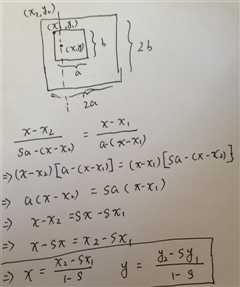 (x₂, y₂)
(x₁, y₁)
(x, y)
b
2b
a
2a
(x-x₂)/(sa-(x-x₂)) = (x-x₁)/(a-(x-x₁))
⇒ (x-x₂)[a-(x-x₁)] = (x-x₁)[sa-(x-x₂)]
⇒ a(x-x₂) = sa(x-x₁)
⇒ x-x₂ = sx-sx₁
⇒ x-sx = x₂-sx₁
⇒ x = (x₂-sx₁)/(1-s) y = (y₂-sy₁)/(1-s)